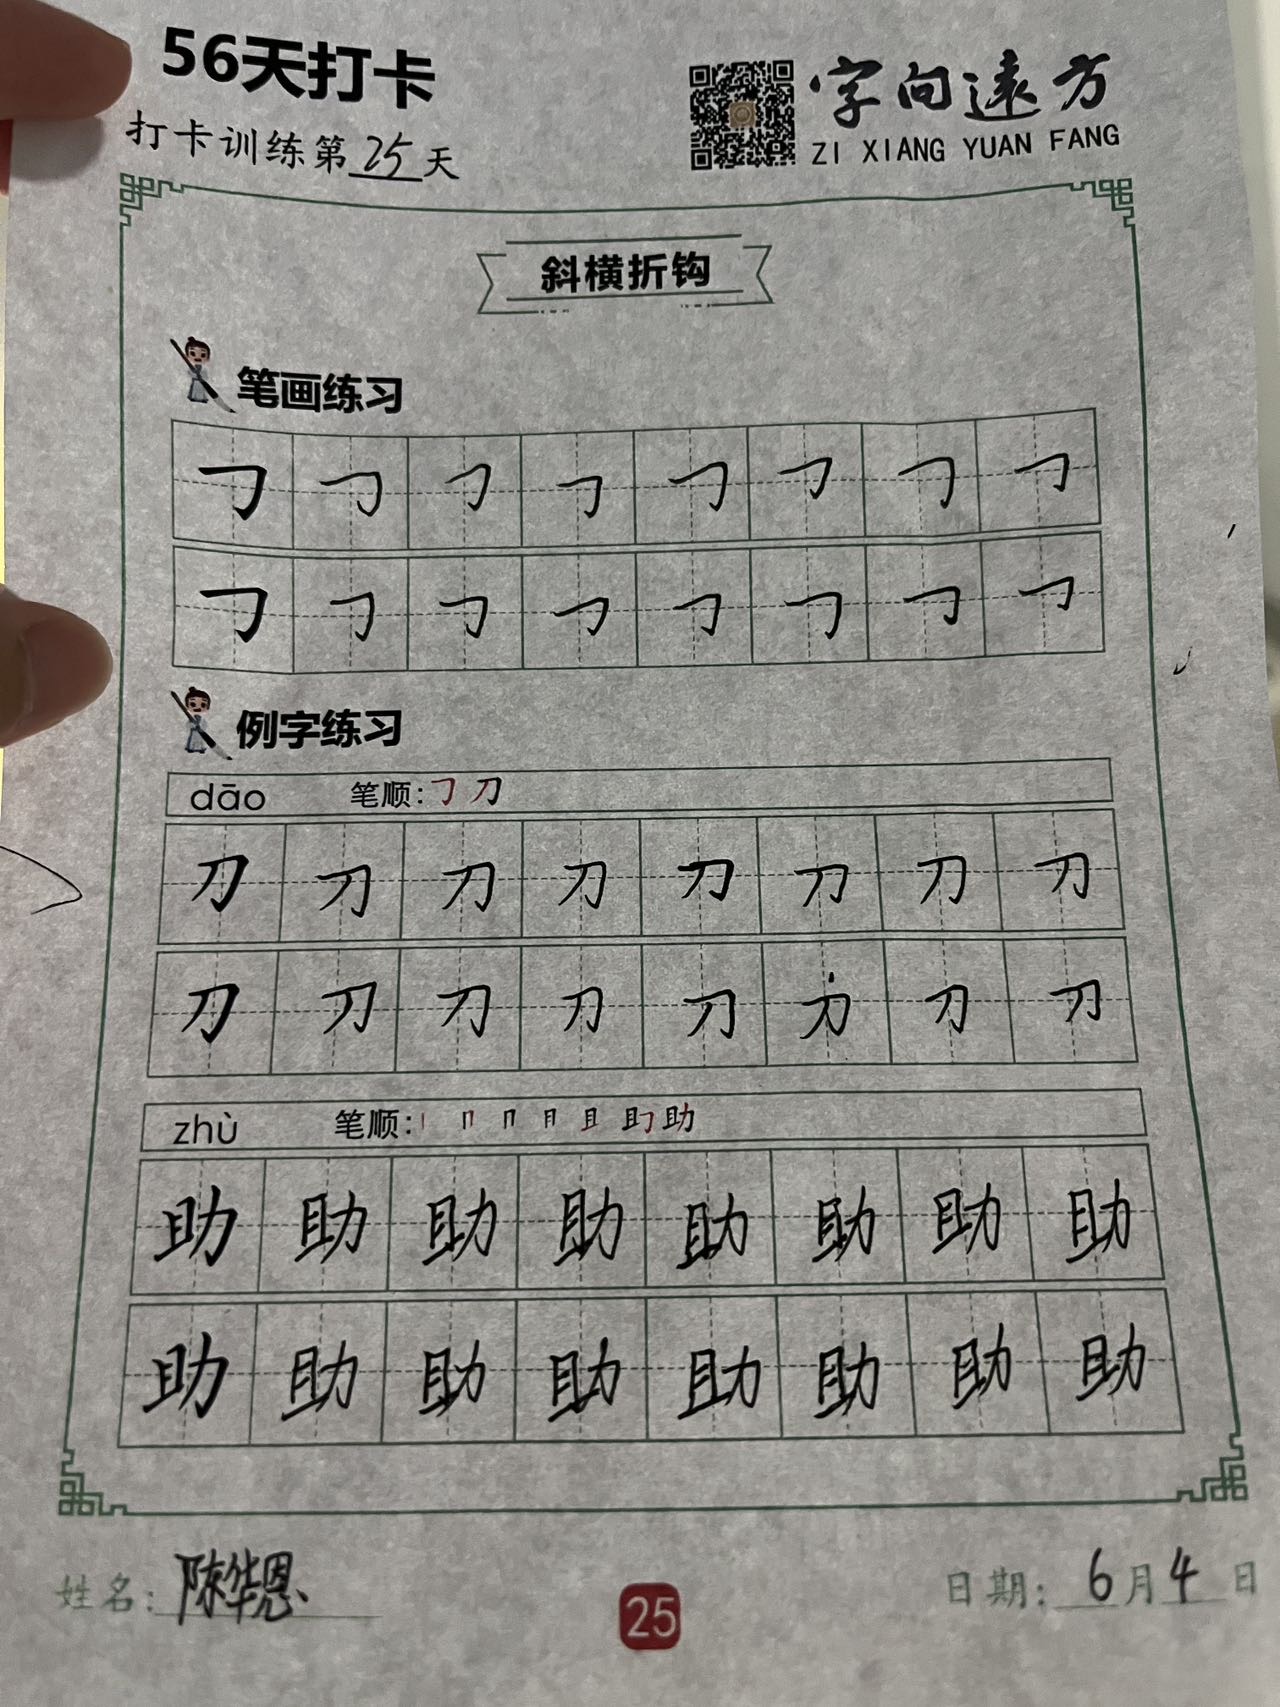 56天打卡
打卡训练第25天
字向遠方
ZI XIANG YUAN FANG
斜横折钩
笔画练习
𠃌 𠃌 𠃌 𠃌 𠃌 𠃌 𠃌 𠃌
𠃌 𠃌 𠃌 𠃌 𠃌 𠃌 𠃌 𠃌
例字练习
dāo 笔顺: 𠃌 刀
刀 刀 刀 刀 刀 刀 刀 刀
刀 刀 刀 刀 刀 方 刀 刀
zhù 笔顺:
助 助 助 助 助 助 助 助
助 助 助 助 助 助 助 助
姓名: 陈华恩
日期: 6月4日
25